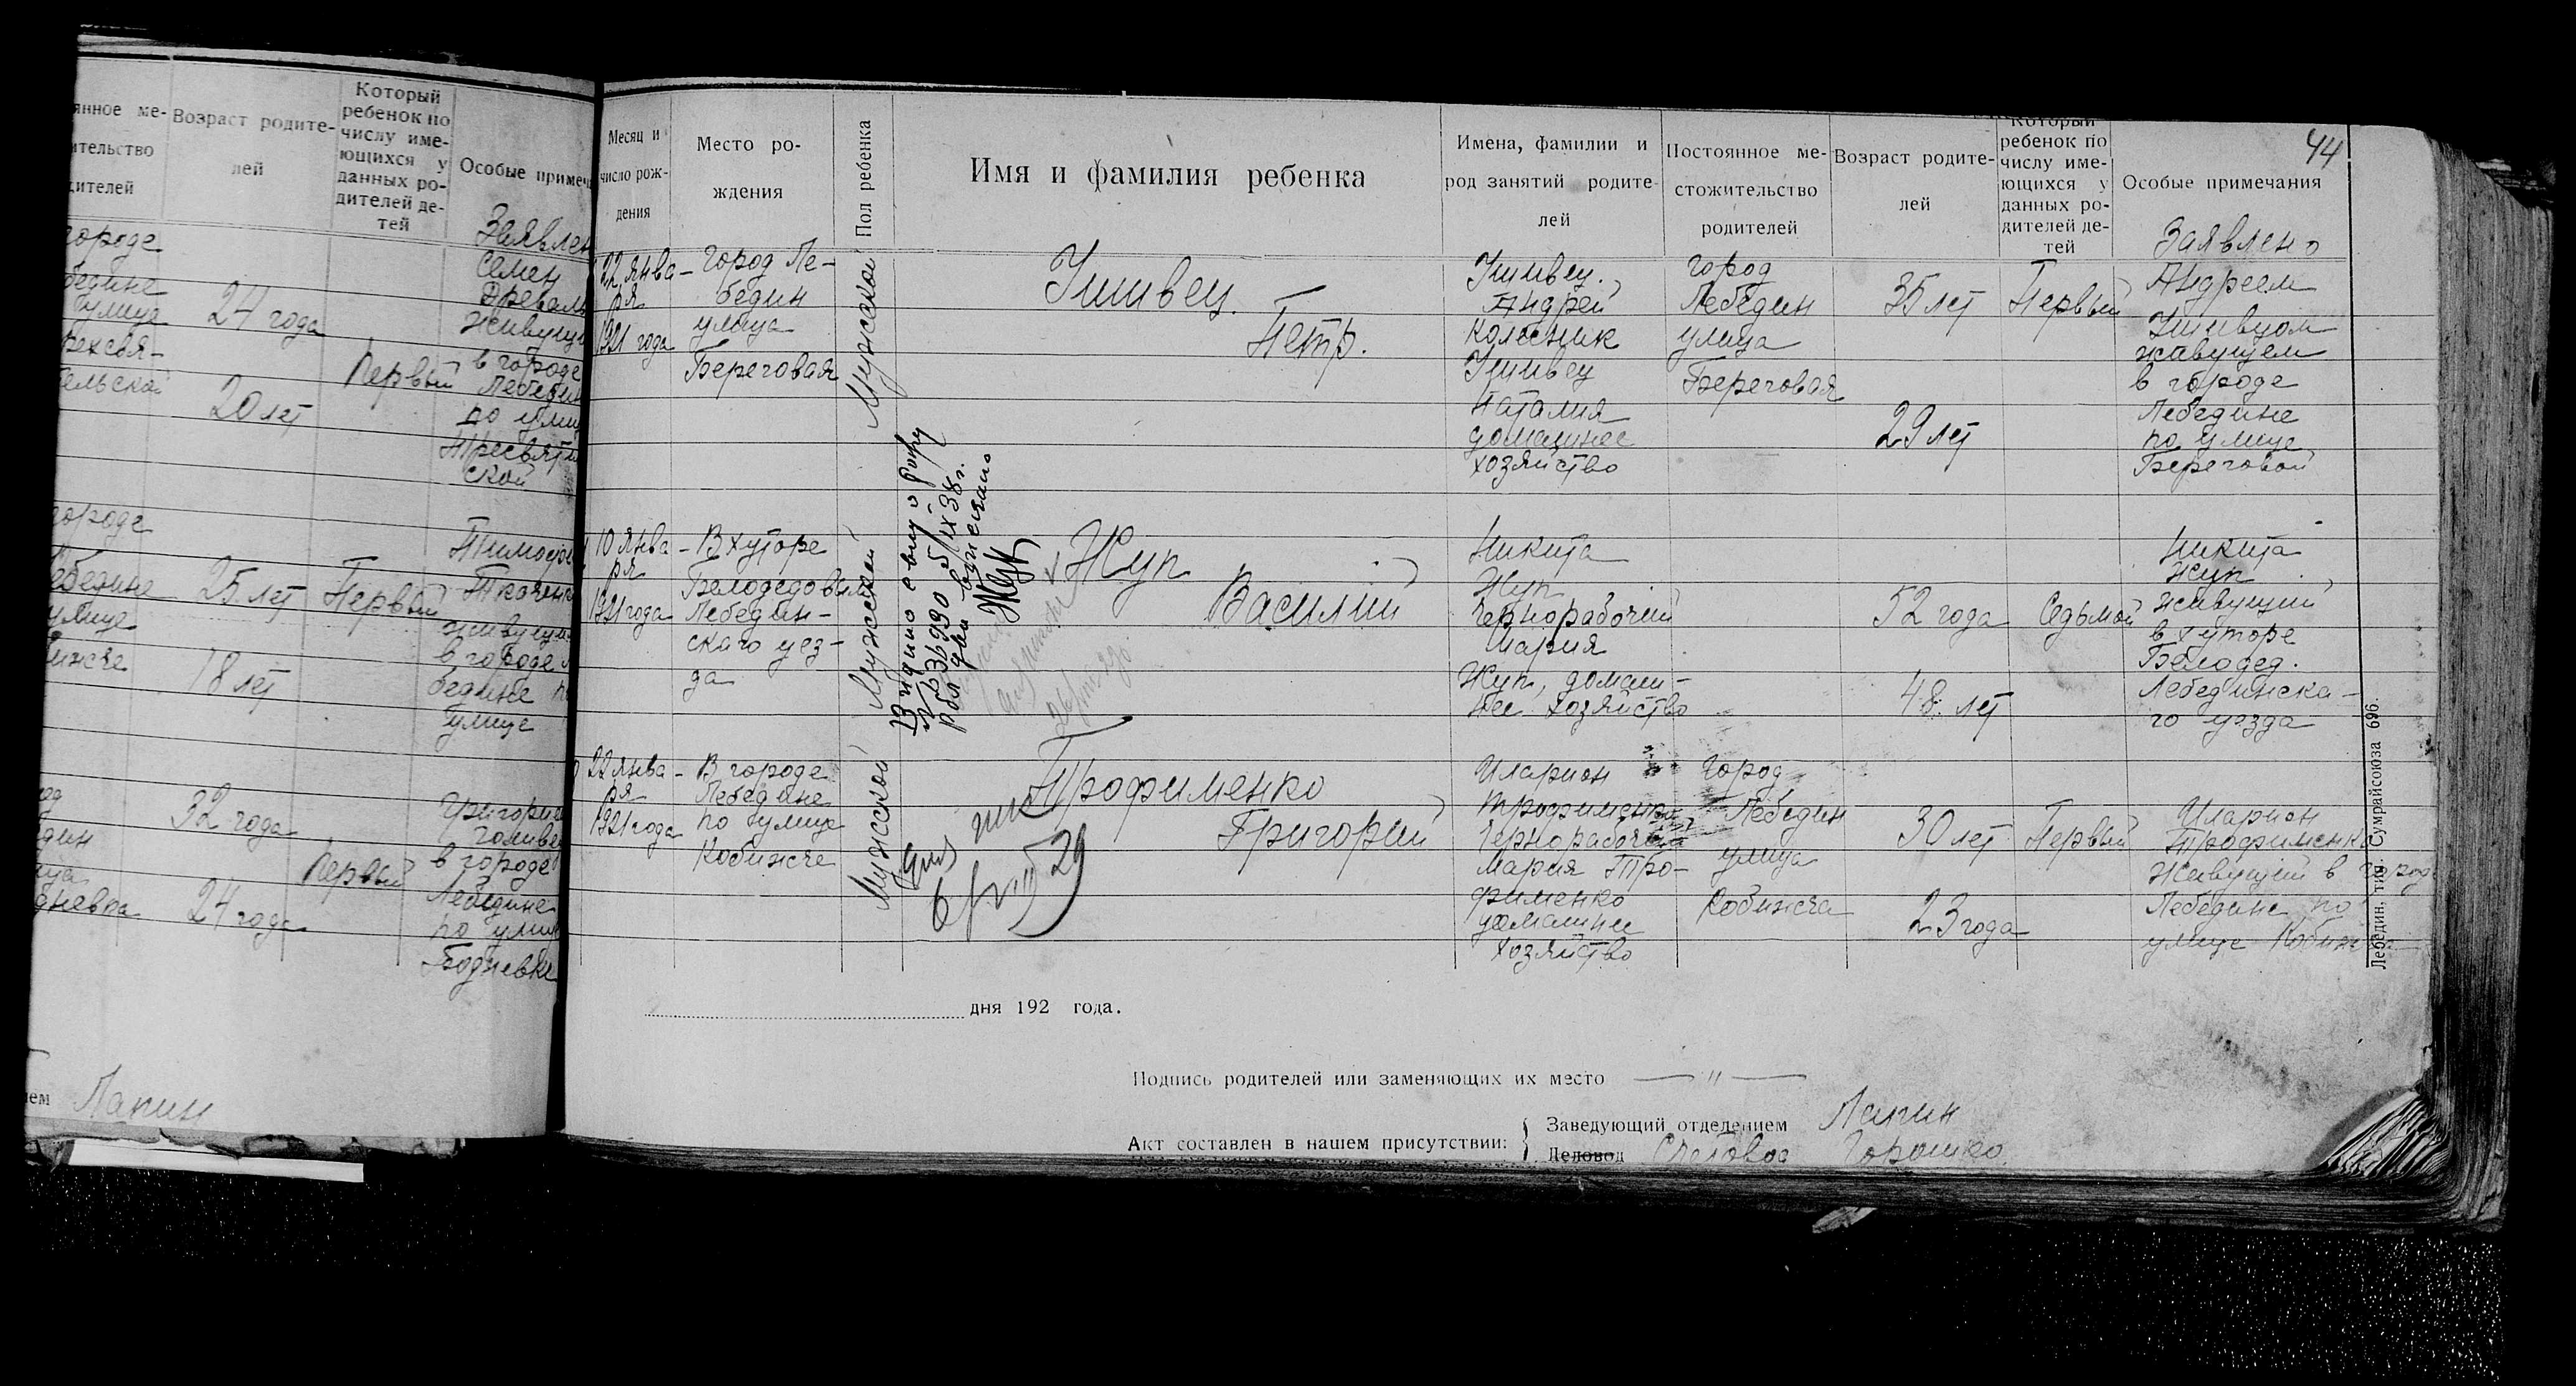 янное ме-
ительство
дителей
Возраст родите-
лей
Который
ребенок по
числу име-
ющихся у
данных ро-
дителей де-
тей
Особые примеч
Заявлен
городе
бедине
улица
24 года
20 лет
Первый
Семен
живущи
в городе
Лебедин
по улиц
ской
городе
Лебедине
улице
25 лет
18 лет
Первый
Тимофе
Ткаченк
живущи
в городе
бедине по
улице
32 года
24 года
Первый
Григорий
в городе
Лебедине
по улиц
ем Лапин
44
Месяц и
число рож-
дения
Место ро-
ждения
Пол ребенка
Имя и фамилия ребенка
Имена, фамилии и
род занятий родите-
лей
Постоянное ме-
стожительство
родителей
Возраст родите-
лей
Который
ребенок по
числу име-
ющихся у
данных ро-
дителей де-
тей
Особые примечания
22 янва-
ря
1921 года
Город Ле-
бедин
улица
Береговая
Мужской
Ушивец
Петр.
Ушивец
Андрей
колесник
Ушивец
Наталия
домашнее
хозяйство
город
Лебедин
улица
Береговая
35 лет
29 лет
Первый
Заявлено
Андреем
Ушивцом
живущем
в городе
Лебедине
по улице
Береговой
10 янва-
ря
1921 года
В хуторе
Белодедовым
Лебедин-
скаго уез-
да
Мужской
Видано
Жуп
Василий
Никита
Жуп
Чернорабочий
Мария
Жуп, домаш-
нее хозяйство
52 года
48 лет
Седьмой
Никита
Жуп
живущий
в хуторе
Белодед.
Лебединска-
го уезда
22 янва-
ря
1921 года
В городе
Лебедине
по улице
Кобижче
Мужской
6/VIII 29
Трофименко
Григорий
Иларион
Трофименко
Чернорабочий
Мария Тро-
фименко
домашнее
хозяйство
город
Лебедин
улица
Кобижча
30 лет
23 года
Первый
Иларион
Трофименко
Живущий в город
Лебедине по
улице Кобиж
Лебедин, тип. Сумрайсоюза 696.
дня 192 года.
Подпись родителей или заменяющих их место — " —
Акт составлен в нашем присутствии:
Заведующий отделением Лапин
Деловод Счетовод Горошко